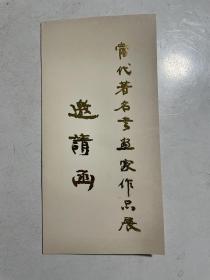 當代著名書画家作品展
邀請函